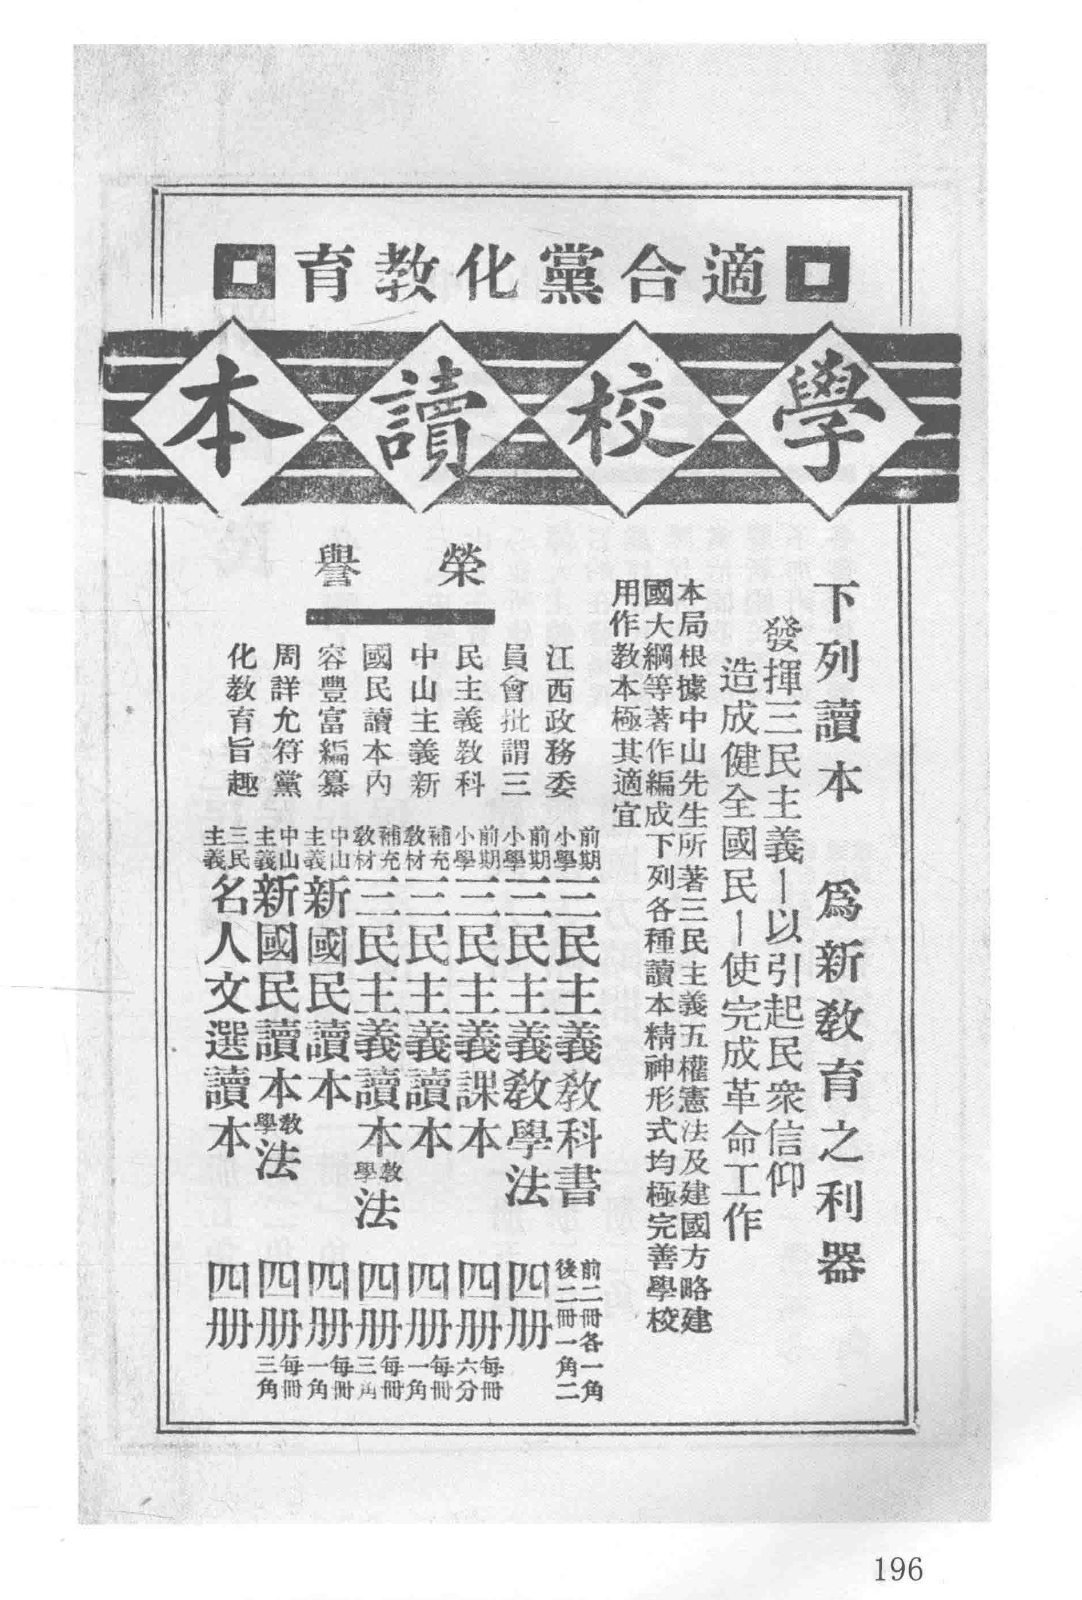 適合黨化教育
學校讀本
下列讀本　爲新教育之利器
發揮三民主義—以引起民衆信仰
造成健全國民—使完成革命工作
本局根據中山先生所著三民主義五權憲法及建國方略建
國大綱等著作編成下列各種讀本精神形式均極完善學校
用作教本極其適宜
榮譽
江西政務委
員會批謂三
民主義教科
中山主義新
國民讀本內
容豐富編纂
周詳允符黨
化教育旨趣
前期小學三民主義教科書　前二冊各一角後二冊一角二
前期小學三民主義教學法　四册
前期小學三民主義課本　四册　每冊六分
補充教材三民主義讀本　四册　每冊一角
補充教材三民主義讀本教學法　四册　每冊三角
中山主義新國民讀本　四册　每冊一角
中山主義新國民讀本教學法　四册　每冊三角
三民主義名人文選讀本　四册
196